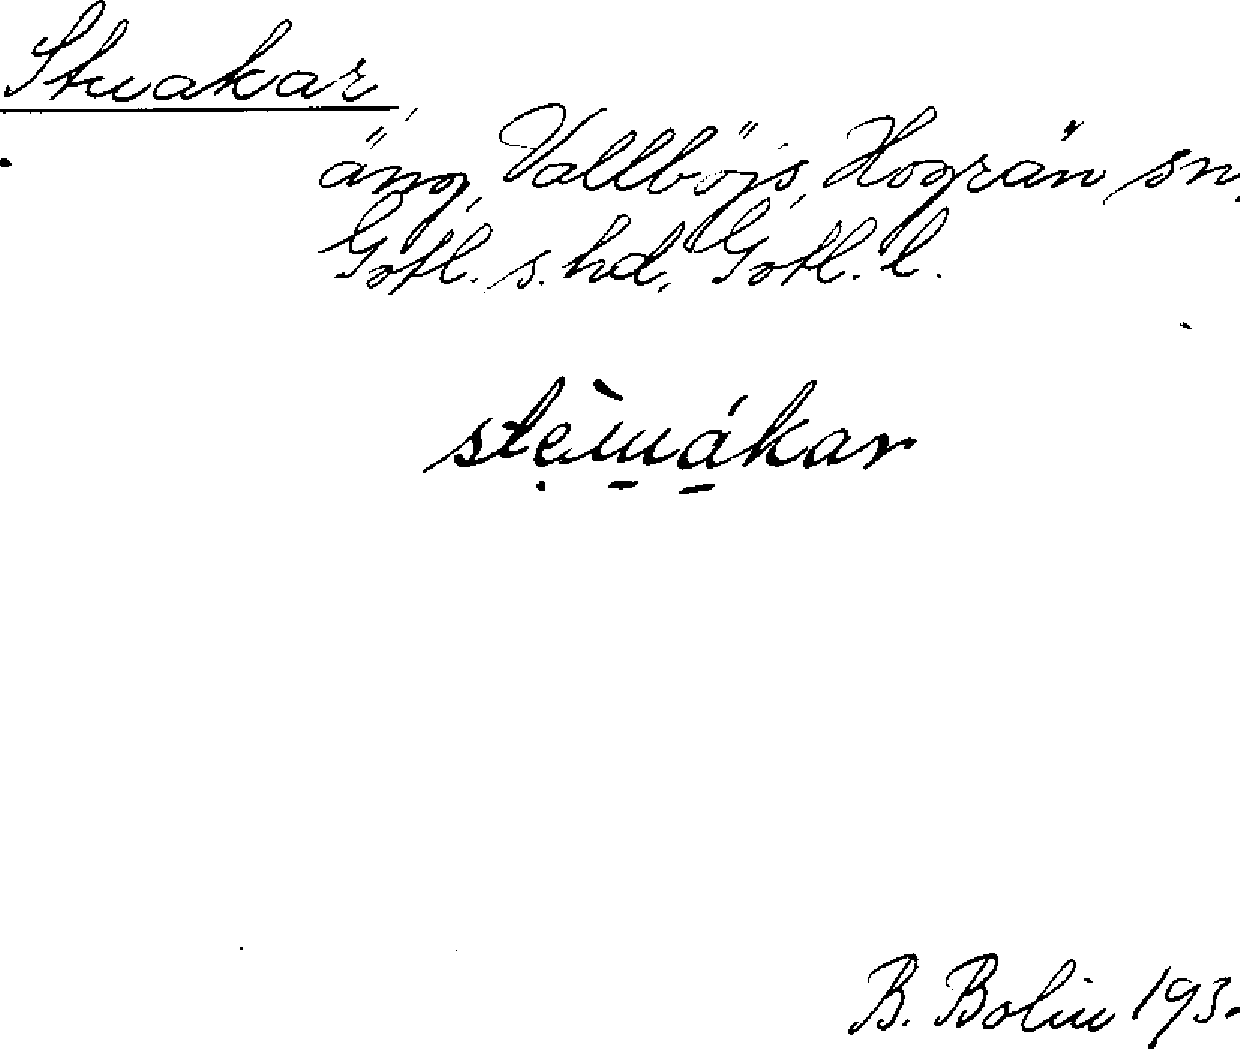 Stuakar,
äng, Vallböjs, Hogrän sn,
Gotl. s. hd, Gotl. l.
B. Bolin 193